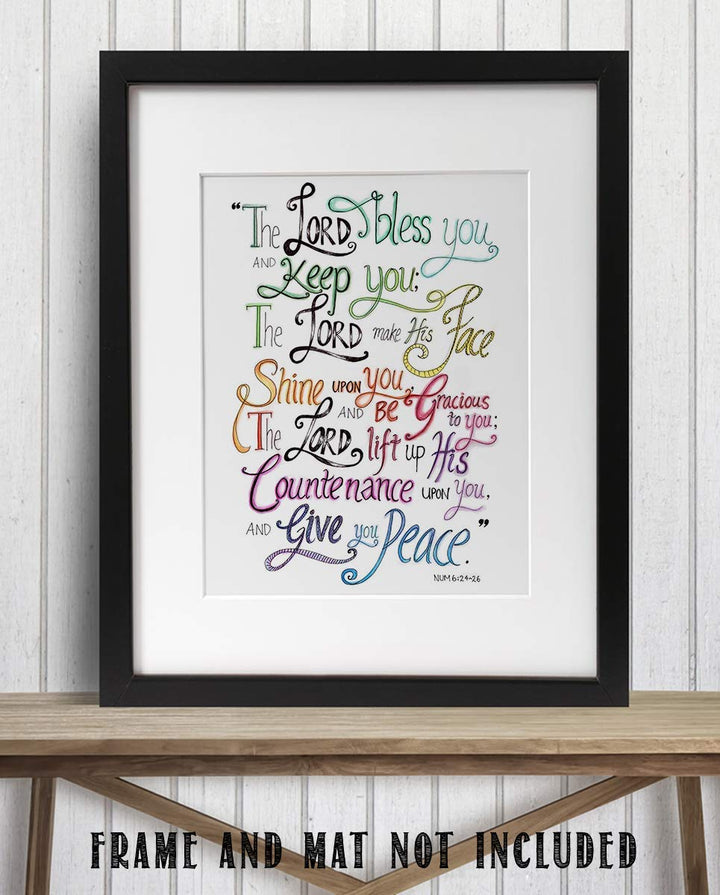 “The LORD bless you
AND Keep you;
The LORD make His Face
Shine UPON you,
AND BE Gracious
to you;
The LORD, lift up His
Countenance UPON you,
AND Give you Peace.”
NUM 6:24-26
FRAME AND MAT NOT INCLUDED